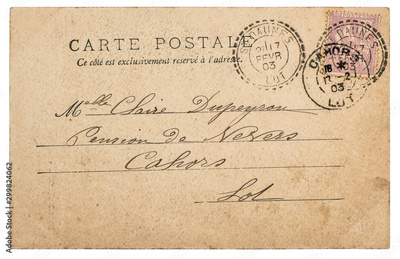 CARTE POSTALE
Ce côté est exclusivement reservé à l'adresse.
DAUNES
17
FEVR
03
LOT
CAHORS
17 -2
03
LOT
Melle Claire Dupeyron
Pension de Nevers
Cahors
Lot
Adobe Stock | #299824062